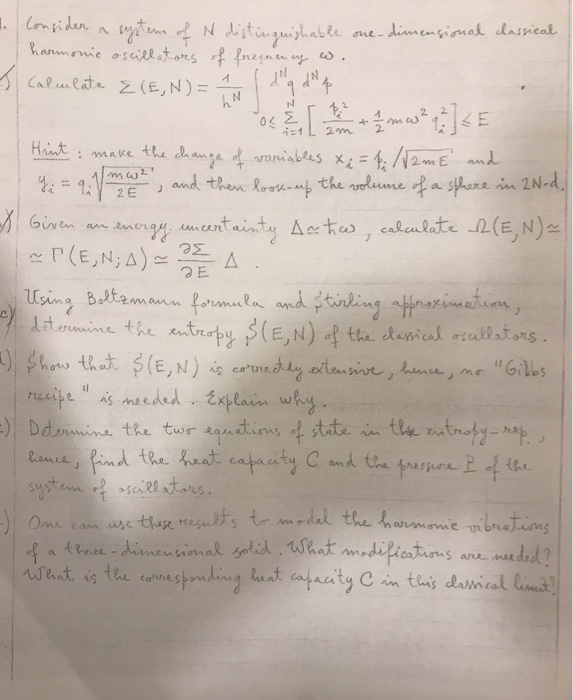 1. Consider a system of N distinguishable one-dimensional classical
harmonic oscillators of frequency ω.
) Calculate Σ(E,N) = 1/h^N ∫ d^N q d^N p
0 ≤ Σ_{i=1}^{N} [ p_i²/2m + 1/2 mω² q_i² ] ≤ E
Hint : make the change of variables x_i = p_i/√2mE and
y_i = q_i √(mω²/2E) , and then look-up the volume of a sphere in 2N-d.
) Given an energy uncertainty Δ≃ħω, calculate Ω(E,N)≃
≃ Γ(E,N;Δ) ≃ ∂Σ/∂E Δ .
c) Using Boltzmann formula and Stirling approximation,
determine the entropy S(E,N) of the classical oscillators.
) Show that S(E,N) is correctly extensive, hence, no "Gibbs
recipe" is needed. Explain why.
) Determine the two equations of state in the entropy-rep,
hence, find the heat capacity C and the pressure P of the
system of oscillators.
) One can use these results to model the harmonic vibrations
of a three-dimensional solid. What modifications are needed?
What is the corresponding heat capacity C in this classical limit?